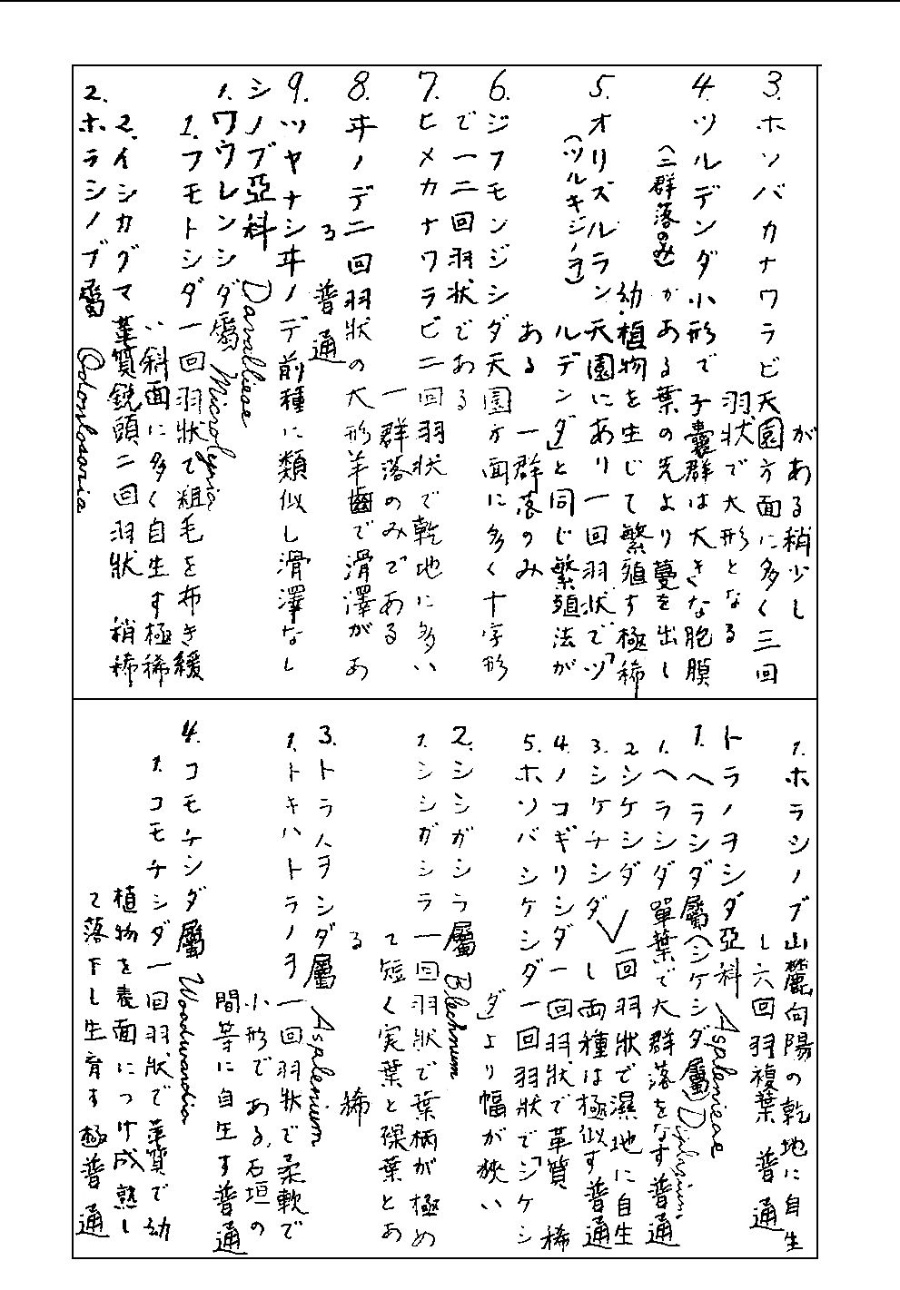 がある稍少し
3. ホソバカナワラビ天園方面に多く三回
羽状で大形となる
4. ツルデンダ小形で子嚢群は大きな胞膜
(二群落のみ)がある葉の先より蔓を出し
幼植物を生じて繁殖す極稀
5. オリズルラン天園にあり一回羽状で「ツ
(ツルキジノヲ)ルデンダ」と同じ繁殖法が
ある 一群落のみ
6. ジフモンジシダ天園方面に多く十字形
で一二回羽状である
7. ヒメカナワラビ二回羽状で乾地に多い
一群落のみである
8. ヰノデ二回羽状の大形羊歯で滑澤があ
る 普通
9. ツヤナシヰノデ前種に類似し滑澤なし
シノブ亞科 Davallieae
1. ワウレンシダ屬 Microlepia
1. フモトシダ一回羽状で粗毛を布き緩
い斜面に多く自生す極稀
2. イシカグマ革質鋭頭二回羽状 稍稀
2. ホラシノブ屬 Odontosoria
1. ホラシノブ山麓向陽の乾地に自生
し六回羽複葉 普通
トラノヲシダ亞科 Asplenieae
1. ヘラシダ屬(シケシダ屬) Diplazium
1. ヘラシダ單葉で大群落をなす普通
2 シケシダ 一回羽狀で濕地に自生
3. シケチシダ し両種は極似す普通
4. ノコギリシダ一回羽狀で革質 稀
5. ホソバシケシダ一回羽狀で「シケシ
ダ」より幅が狹い
2. シシガシラ屬 Blechnum
1. シシガシラ一回羽狀で葉柄が極め
て短く実葉と裸葉とあ
る 稀
3. トラノヲシダ屬 Asplenium
1. トキハトラノヲ一回羽狀で柔軟で
小形である,石垣の
間等に自生す普通
4. コモチシダ屬 Woodwardia
1. コモチシダ一回羽狀で革質で幼
植物を表面につけ成熟し
て落下し生育す極普通